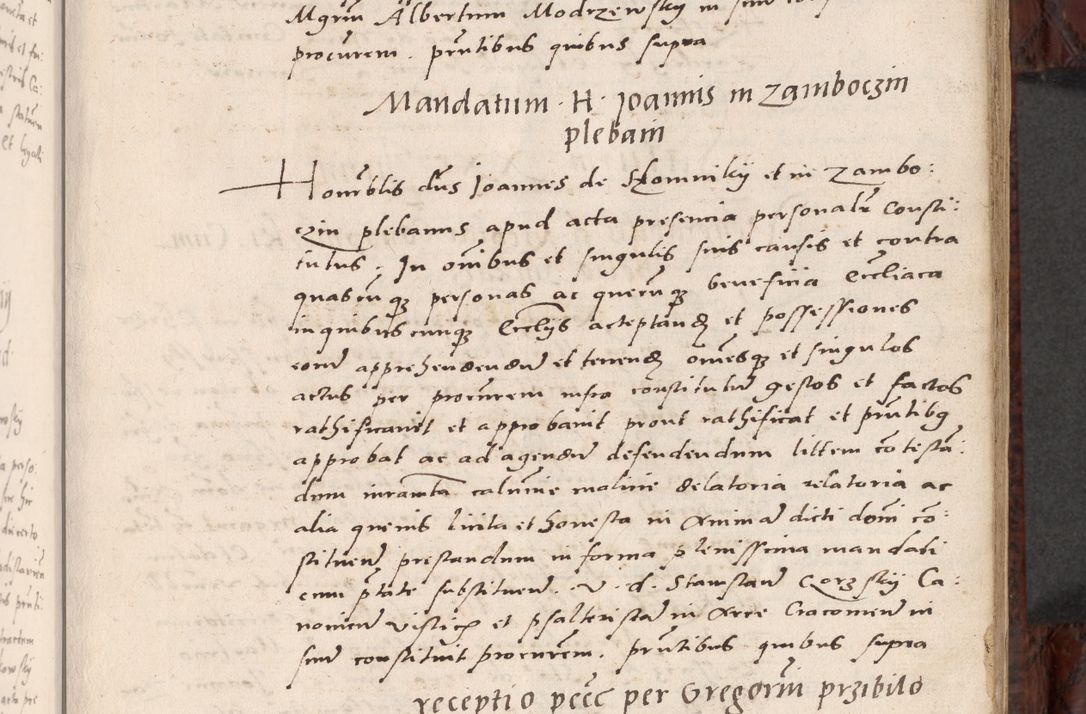 Mgrm Albertum Modrzewsky in suum
procurem. prntibus quibus supra
Mandatum H. Joannis in Zamboczin
plebani
Honrblis dns Joannes de Skomniky et in Zambo:
czin plebanus apud acta presencia personalr consti:
tutus, In omibus et singulis suis causis et contra
quascunqz personas ac quecunqz beneficia Eccliaca
in quibuscunqz Eccliis acceptand et possessiones
eorum apprehendendum et tenend omesqz et singulos
actus per procurem infra constitutum gestos et factos
rathificavit et approbavit prout rathificat et prntibus
approbat ac ad agendum defendendum littem contestan:
dum iuramta calumnie malicie delatoria relatoria ac
alia quevis licita et honesta in Animam dicti domini con:
stituen prestandum in forma plenissima mandati
cum ptate substituen. V. d. Stanislaum Gorzsky Ca:
nonicum visliczn et psalteristam in Arce Cracovien in
suum constituit procurem. prntibus quibus supra
receptio pccc per Gregorium przibilo